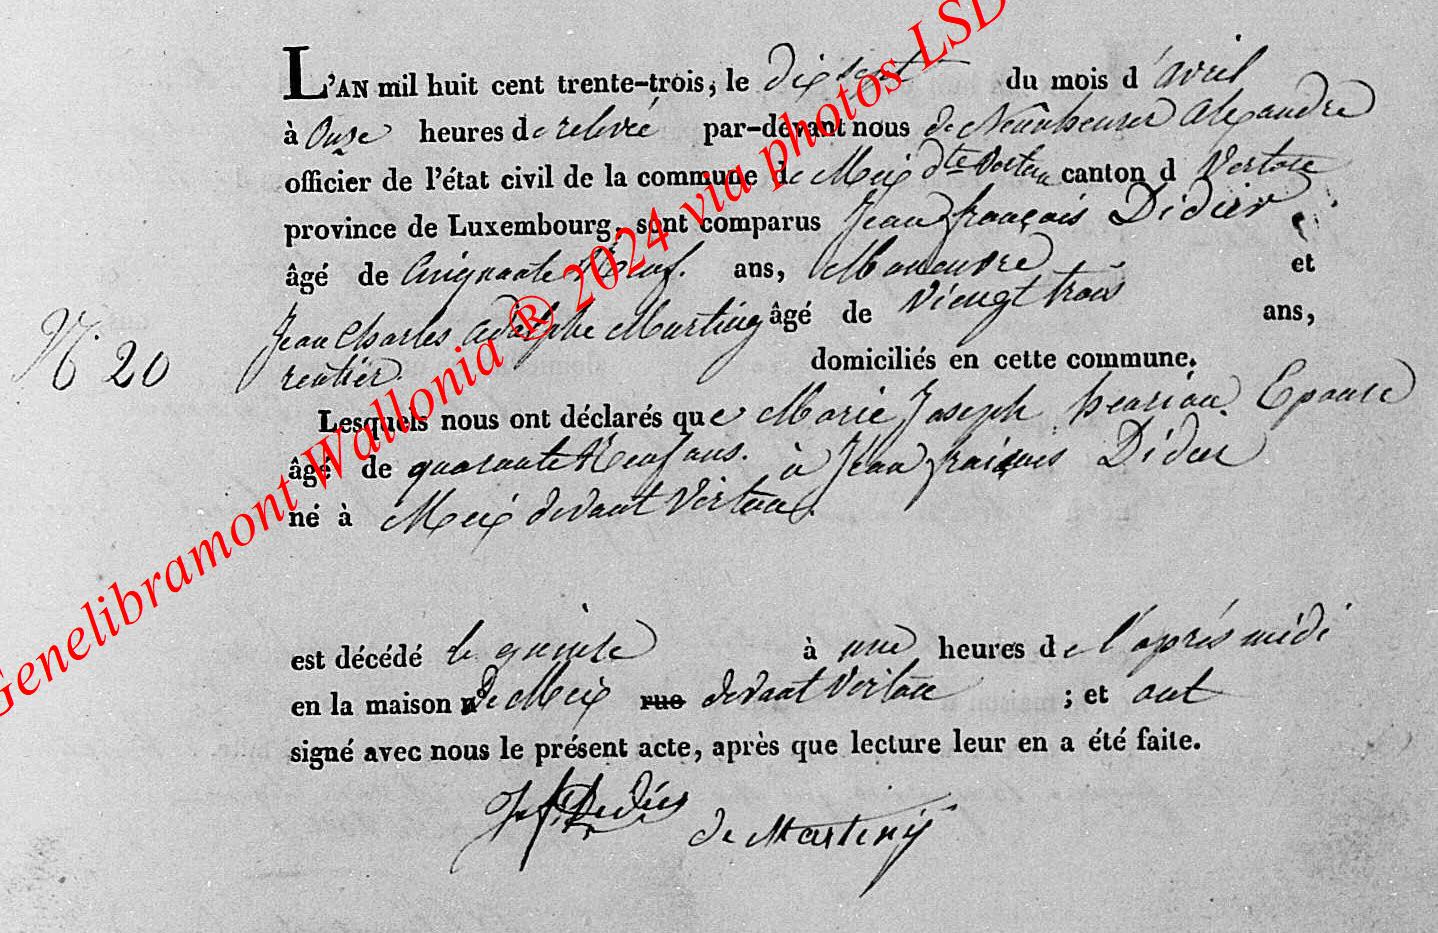 L'AN mil huit cent trente-trois, le dix sept du mois d'avril
à Onze heures de relevée par-devant nous de Neunheuser Alexandre
officier de l'état civil de la commune de Meix dte Vertou canton d Vertou
province de Luxembourg, sont comparus Jean françois Didier
âgé de Cinquante Neuf. ans, Manouvre et
Jean Charles adolphe Martiny âgé de Viengt trois ans,
rentier. domiciliés en cette commune.
N° 20
Lesquels nous ont déclarés que Marie Joseph henriou Epouse
âgé de quarante Neuf ans. à Jean fraiçuis Didier
né à Meix devant Virtou.
est décédé le quinze à une heures de l'après midi
en la maison n° de Meix rue devant Virtou ; et ont
signé avec nous le présent acte, après que lecture leur en a été faite.
J f Didier
de Martiny
Genelibramont Wallonia ® 2024 via photos LSD